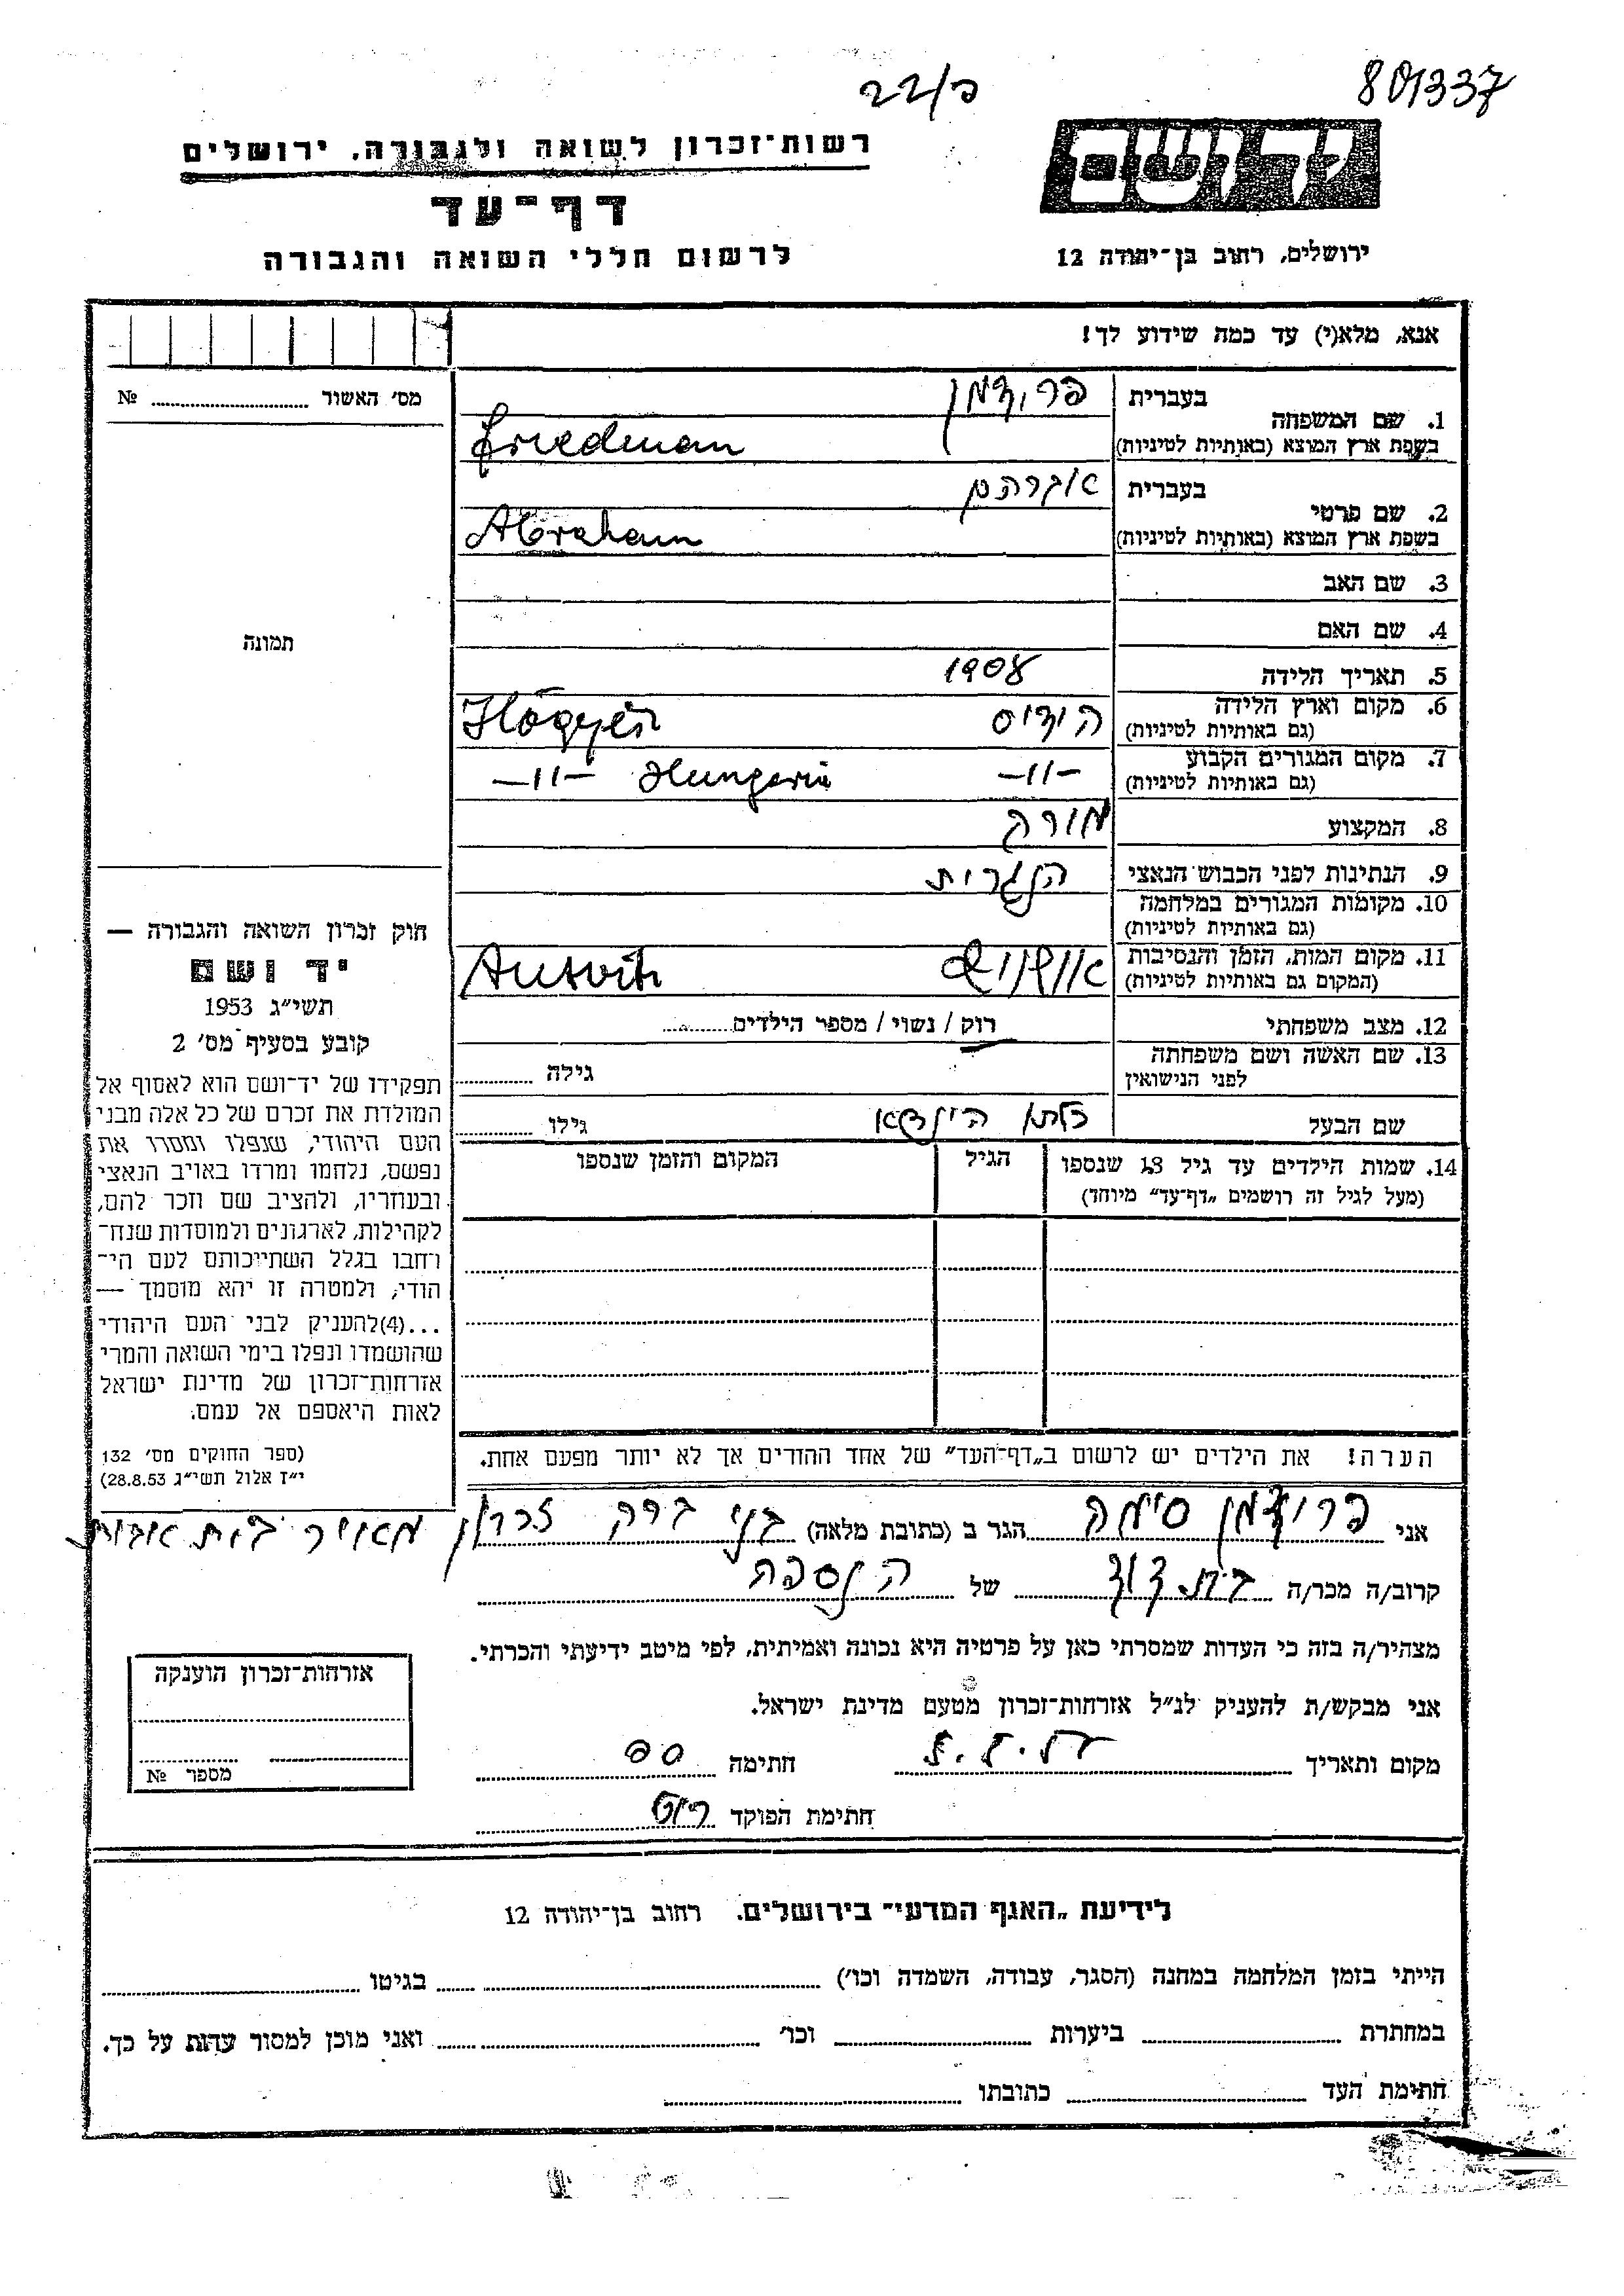 22/פ
801337
רשות-זכרון לשואה ולגבורה, ירושלים
יד ושם
דף-עד
לרשום חללי השואה והגבורה
ירושלים, רחוב בן-יהודה 12
אנא, מלא(י) עד כמה שידוע לך!
מס' האשור № 
1. שם המשפחה בעברית פרידמן
בשפת ארץ המוצא (באותיות לטיניות) Friedman
2. שם פרטי בעברית אברהם
בשפת ארץ המוצא (באותיות לטיניות) Abraham
3. שם האב
4. שם האם
תמונה
5. תאריך הלידה 1908
6. מקום וארץ הלידה
(גם באותיות לטיניות)
7. מקום המגורים הקבוע -11- Hungaria -11-
(גם באותיות לטיניות)
8. המקצוע מורה
9. הנתינות לפני הכבוש הנאצי הנגרית
10. מקומות המגורים במלחמה
(גם באותיות לטיניות)
11. מקום המות, הזמן והנסיבות
(המקום גם באותיות לטיניות)
12. מצב משפחתי רוק / נשוי / מספר הילדים
13. שם האשה ושם משפחתה
לפני הנישואין גילה
שם הבעל גילו
14. שמות הילדים עד גיל 18 שנספו הגיל המקום והזמן שנספו
(מעל לגיל זה רושמים "דף-עד" מיוחד)
חוק זכרון השואה והגבורה —
יד ושם
תשי"ג 1953
קובע בסעיף מס' 2
תפקידו של יד-ושם הוא לאסוף אל
המולדת את זכרם של כל אלה מבני
העם היהודי, שנפלו ומסרו את
נפשם, נלחמו ומרדו באויב הנאצי
ובעוזריו, ולהציב שם וזכר להם,
לקהילות, לארגונים ולמוסדות שנח-
רחבו בגלל השתייכותם לעם הי-
הודי, ולמטרה זו יהא מוסמך —
...(4)להעניק לבני העם היהודי
שהושמדו ונפלו בימי השואה והמרי
אזרחות-זכרון של מדינת ישראל
לאות היאספם אל עמם.
(ספר החוקים מס' 132
י"ז אלול תשי"ג 28.8.53)
הערה! את הילדים יש לרשום ב"דף-העד" של אחד ההורים אך לא יותר מפעם אחת.
אני פרידמן סימה הגר ב (כתובת מלאה) בני ברק זכרון מאיר בית אבות
קרוב/ה מכר/ה בת דוד של הנספה
מצהיר/ה בזה כי העדות שמסרתי כאן על פרטיה היא נכונה ואמיתית, לפי מיטב ידיעתי והכרתי.
אני מבקש/ת להעניק לנ"ל אזרחות-זכרון מטעם מדינת ישראל.
מקום ותאריך חתימה
חתימת הפוקד
אזרחות-זכרון הוענקה
מספר №
לידיעת "האגף המדעי" בירושלים, רחוב בן-יהודה 12
הייתי בזמן המלחמה במחנה (הסגר, עבודה, השמדה וכו') בגיטו
במחתרת ביערות וכו' ואני מוכן למסור עדות על כך.
חתימת העד כתובתו